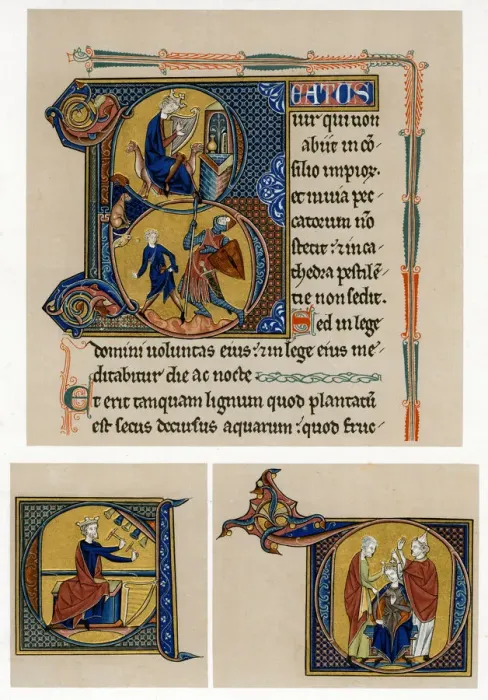 BEATUS
uir qui non
abiit in cō-
silio impioꝝ.
et in uia pec-
catorum nō
stetit : ⁊ in ca-
thedra pestilē-
tie non sedit.
Sed in lege
domini uoluntas eius : ⁊ in lege eius me-
ditabitur die ac nocte
Et erit tanquam lignum quod plantatū
est secus decursus aquarum : quod fruc-
E
D